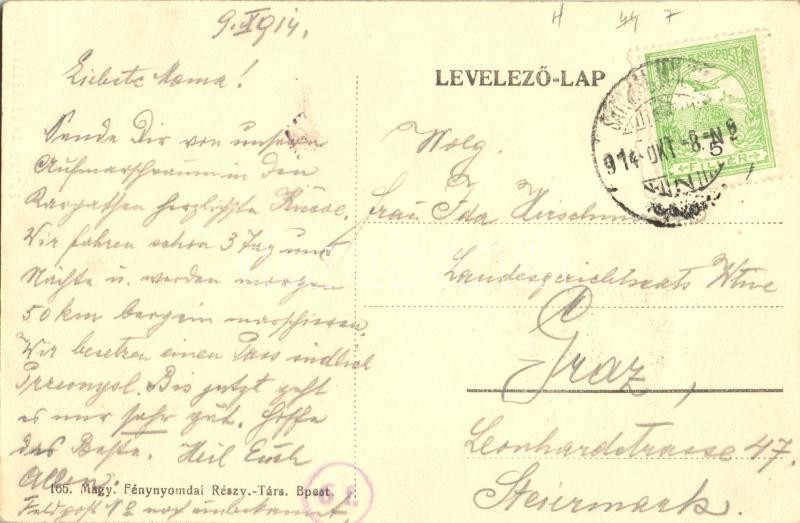 9. X 1914.
Liebste Mama!
Sende Dir von unserem
Aufmarschraum in den
Karpathen herzlichste Küsse.
Wir fahren schon 3 Tag und
Nächte u. werden morgen
50 km bergein marschieren.
Wir besetzen einen Pass südlich
Przemysl. Bis jetzt geht
es mir sehr gut. Hoffe
das Beste. Heil Euch
Allen.
Feldpost No noch unbekannt.
166. Magy. Fénynyomdai Részv.-Társ. Bpest.
LEVELEZŐ-LAP
914 OKT -8. N 5
5
FILLÉR
Wolg.
Frau Ida
Landesgerichtsrats Wtwe
Graz,
Leonhardstrasse 47.
Steiermark.